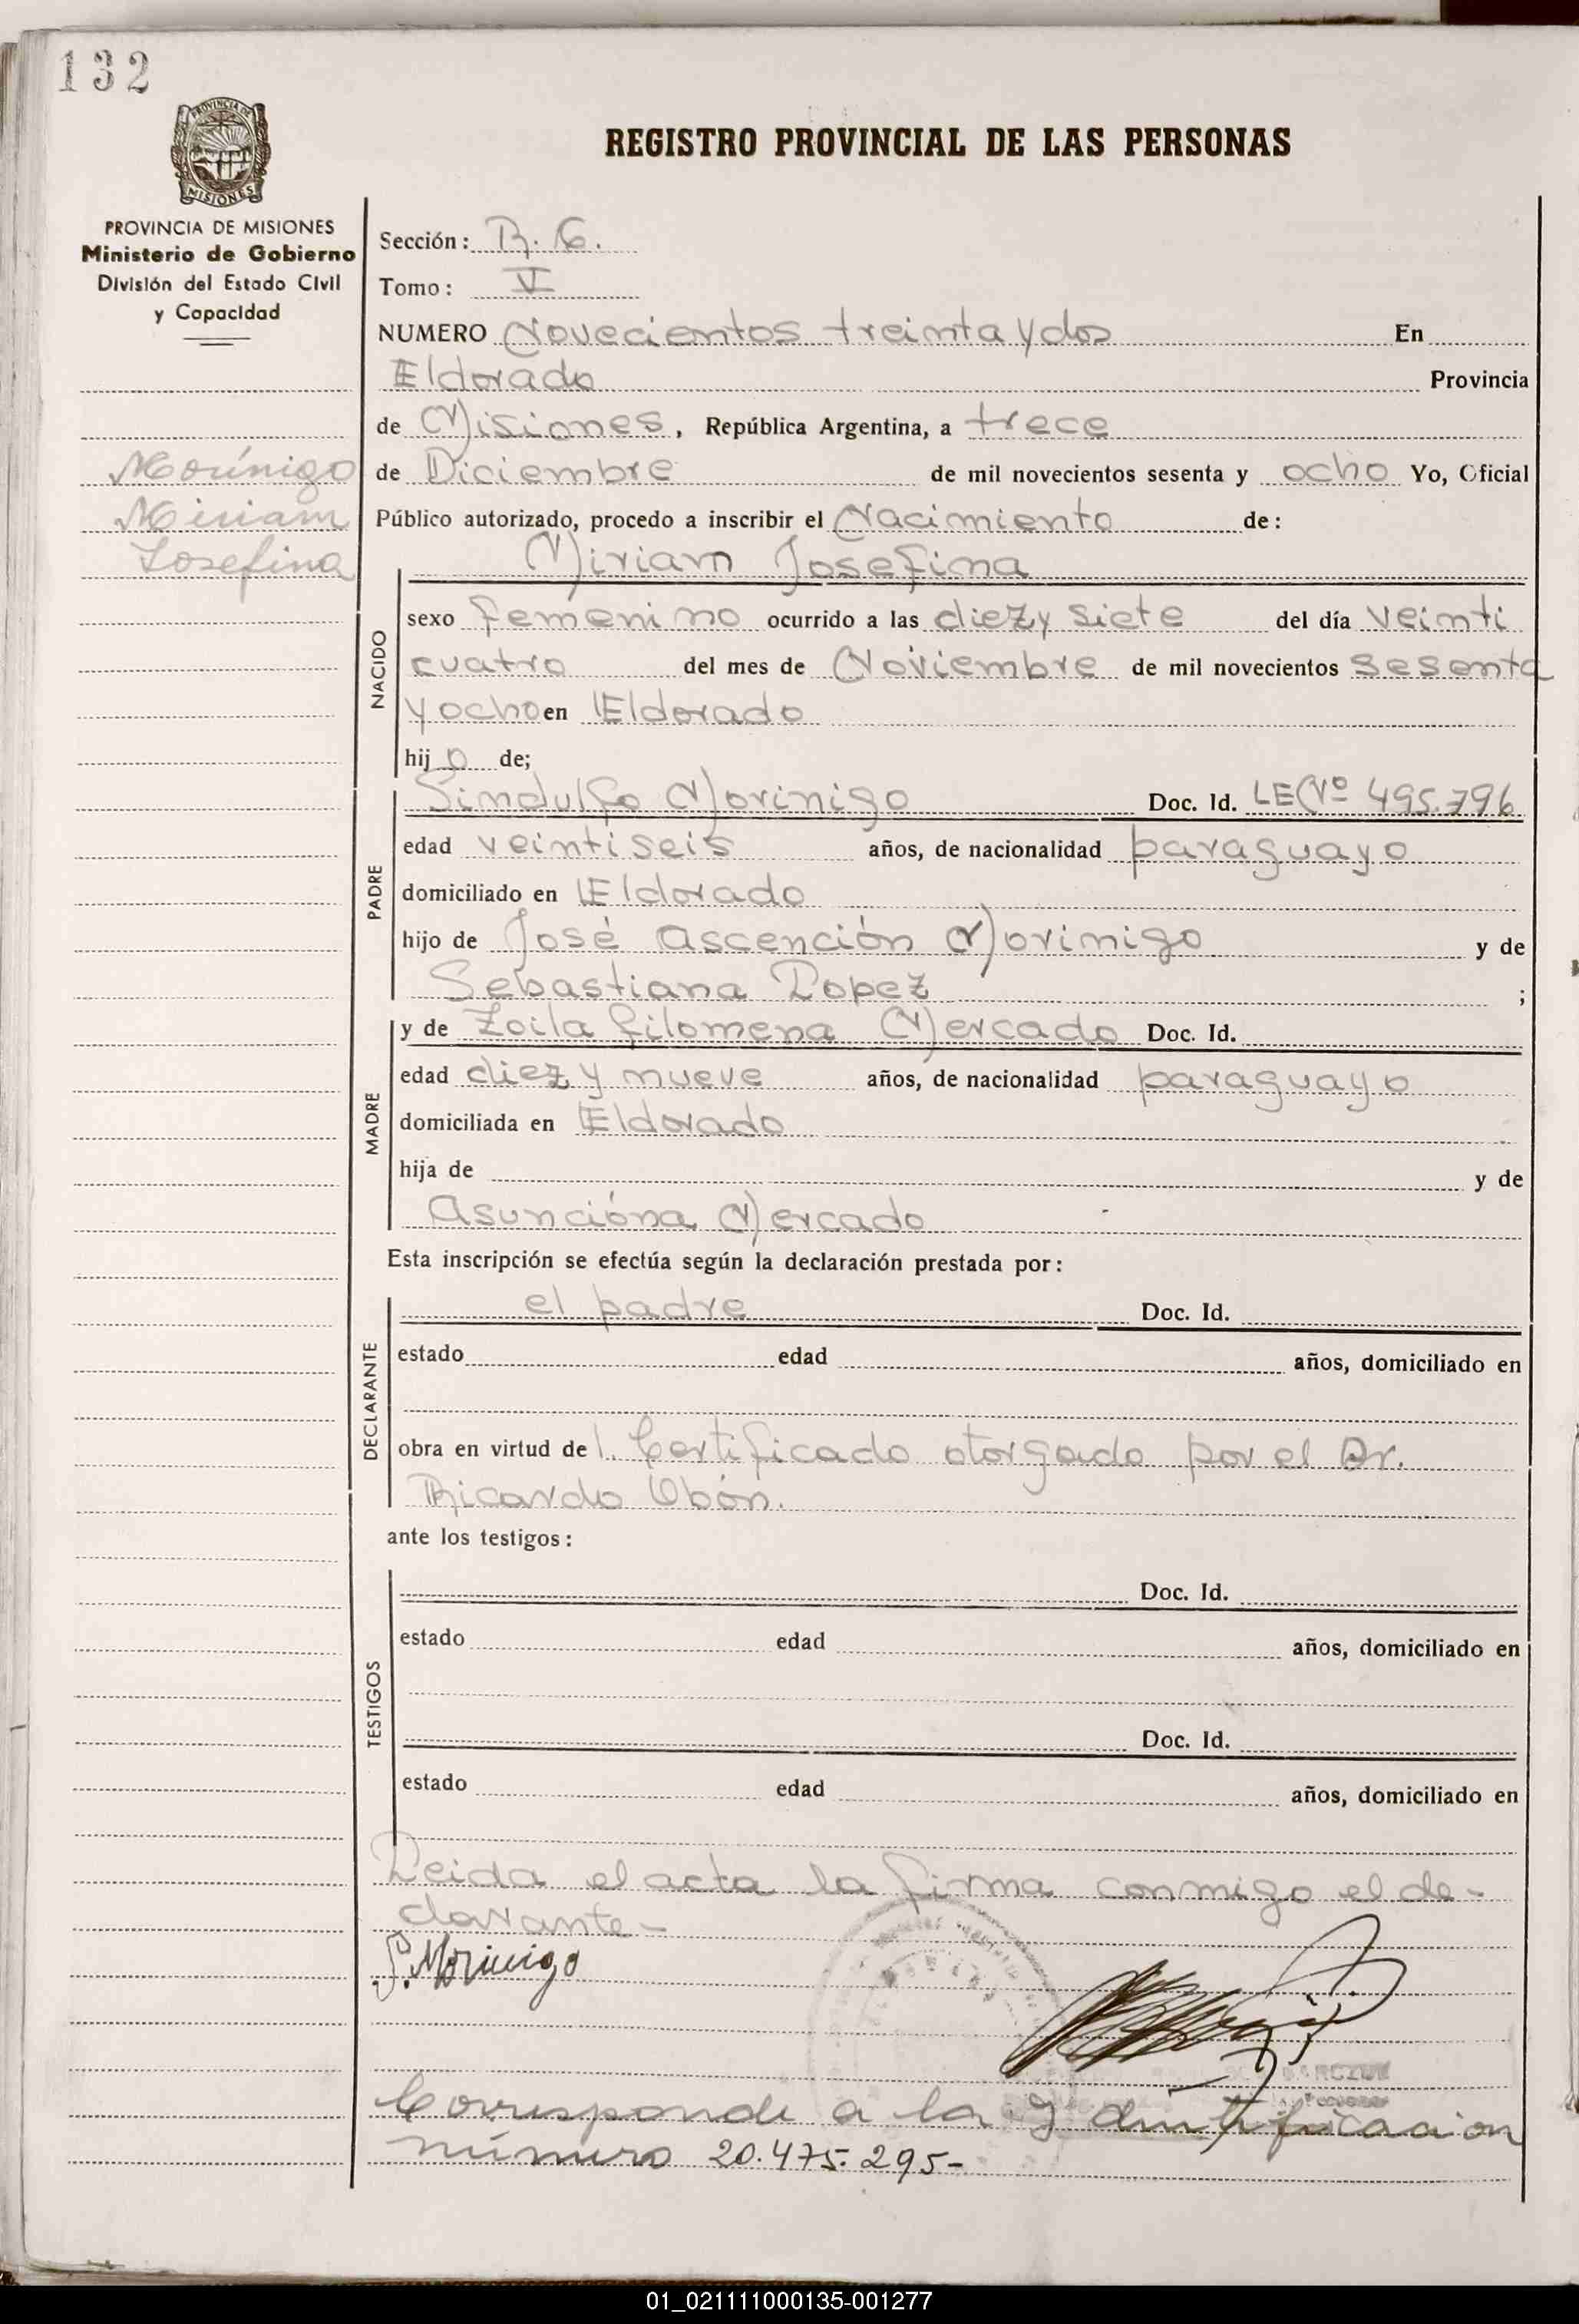 132
PROVINCIA DE MISIONES
REGISTRO PROVINCIAL DE LAS PERSONAS
PROVINCIA DE MISIONES
Ministerio de Gobierno
División del Estado Civil
y Capacidad
Morínigo
Miriam
Josefina
Sección: R. C.
Tomo: V
NUMERO Novecientos treinta y dos En
Eldorado Provincia
de Misiones, República Argentina, a trece
de Diciembre de mil novecientos sesenta y ocho Yo, Oficial
Público autorizado, procedo a inscribir el Nacimiento de:
Miriam Josefina
NACIDO
sexo femenino ocurrido a las diez y siete del día veinti
cuatro del mes de Noviembre de mil novecientos sesenta
y ocho en Eldorado
hij o de;
PADRE
Sindulfo Morinigo Doc. Id. LE Nº 495.796
edad veintiseis años, de nacionalidad paraguayo
domiciliado en Eldorado
hijo de José Ascención Morinigo y de
Sebastiana Lopez ;
MADRE
y de Zoila filomena Mercado Doc. Id.
edad diez y nueve años, de nacionalidad paraguayo
domiciliada en Eldorado
hija de y de
Asuncióna Mercado
Esta inscripción se efectúa según la declaración prestada por:
DECLARANTE
el padre Doc. Id.
estado edad años, domiciliado en
obra en virtud de 1. Certificado otorgado por el Dr.
Ricardo Obón.
ante los testigos:
TESTIGOS
Doc. Id.
estado edad años, domiciliado en
Doc. Id.
estado edad años, domiciliado en
Leida el acta la firma conmigo el de-
clarante-
S. Morinigo
Corresponde a la Identificacion
número 20.475.295-
01_021111000135-001277